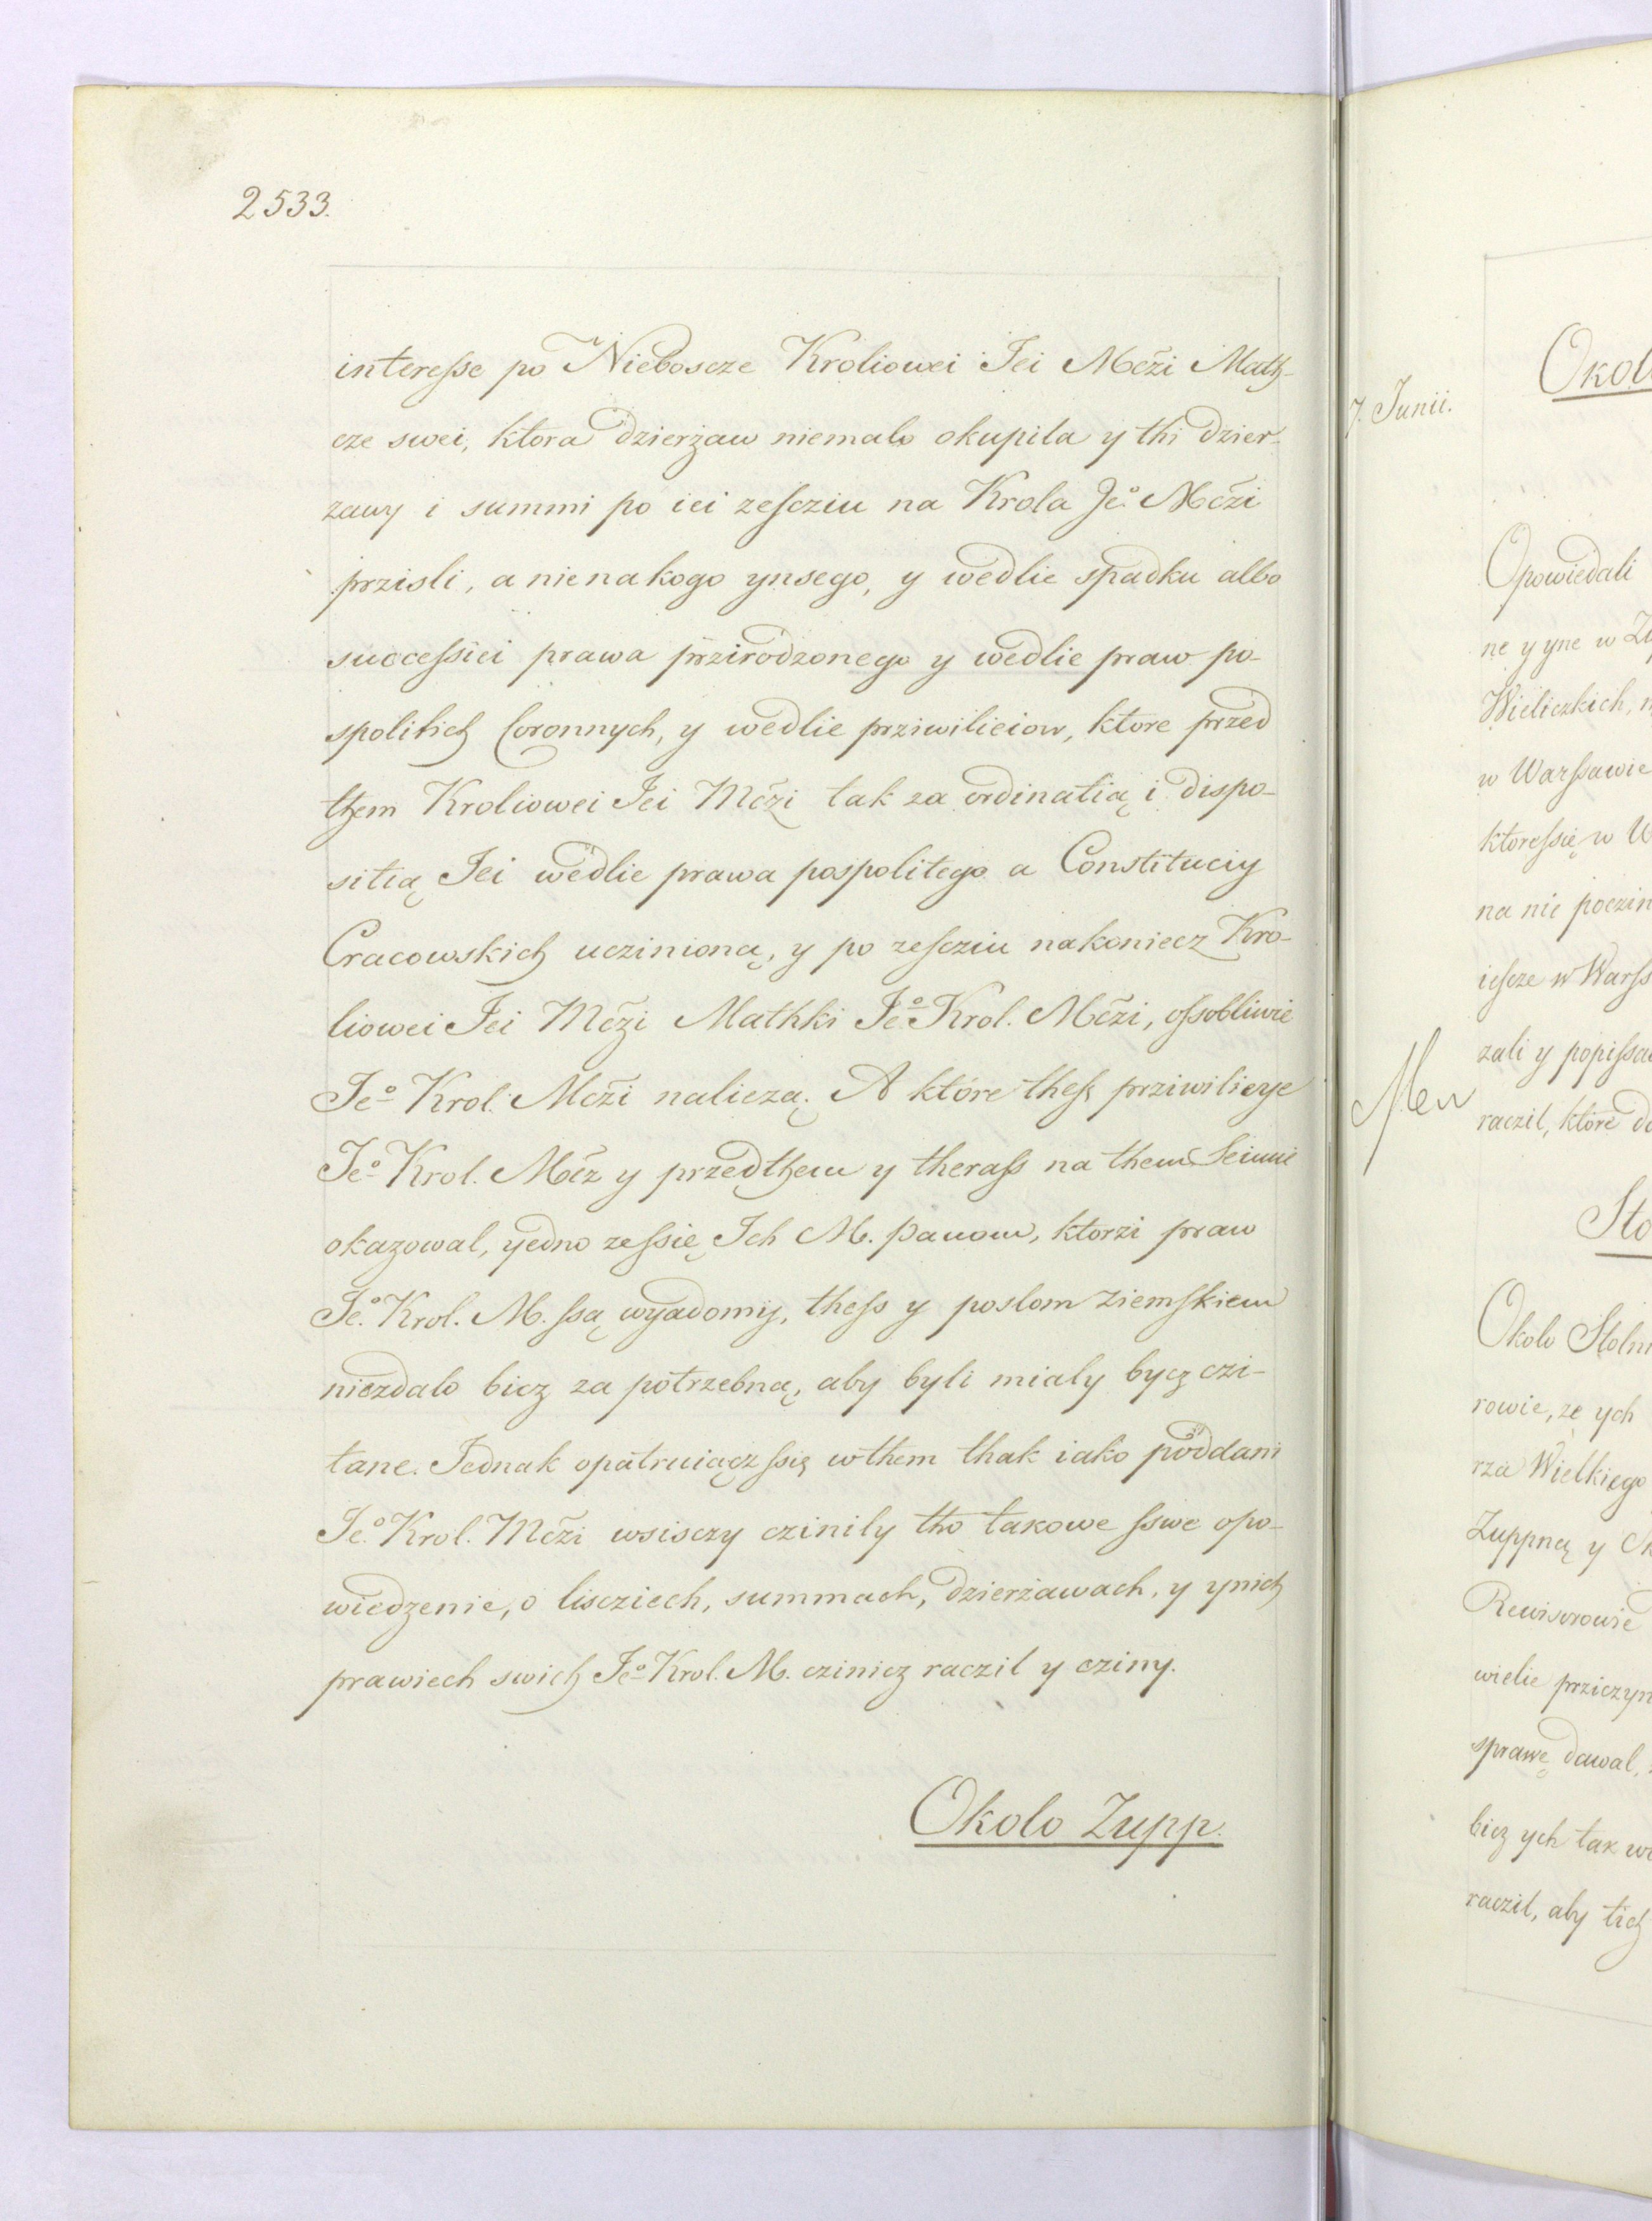 2533.
interesse po Nieboscze Kroliowei Jei Mczi Math-
cze swei, ktora dzierżaw niemalo okupila y thi dzier-
zawy i summi po iei zescziu na Krola Jeo Mczi
przisli, a nie na kogo ynsego, y wedlie spadku albo
successiei prawa przirodzonego y wedlie praw po-
spolitich Coronnych, y wedlie prziwilieiow, ktore przed
them Kroliowei Jei Mczi tak za ordinatią i dispo-
sitią Jei wedlie prawa pospolitego a Constituciy
Cracowskich uczinioną, y po zescziu nakoniecz Kro-
liowei Jei Mczi Mathki Jeo Krol. Mczi, ossobliwie
Jeo Krol. Mczi naliczą. A które thesz prziwilieye
Jeo Krol. Mcz y przedthem y therass na them Seimie
okazowal, yedno zessię Ich M. panom, ktorzi praw
Jeo Krol. M. ssą wyadomy, thess y poslom ziemskiem
niezdalo bicz za potrzebną, aby byli mialy bycz czi-
tane. Jednak opatruiącz ssię w them thak iako poddani
Jeo Krol. Mczi wsisczy czinily tho takowe sswe opo-
wiedzenie, o lisciech, summach, dzierżawach, y ynich
prawiech swich Jeo Krol. M. czinicz raczil y cziny.
Okolo Zupp.
7. Junii.
Opowiedali
ne y yne w
Wieliczkich,
w Warssawie
ktoressię w
na nie
iescze w
zali y
raczil, które
Okolo
rowie, ze ych
rza Wielkiego
Zuppną y
Rewisorowie
wielie
sprawę dawal,
bicz ych tak
raczil, aby tich